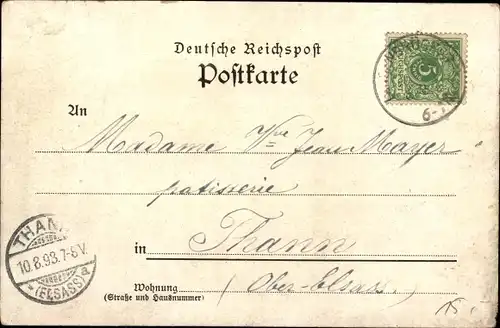 Deutsche Reichspost
Postkarte
5
6-7
An
Madame Vve Jean Mayer
patisserie
in Thann
THANN
10.8.93.7-8V.
* (ELSASS) a
Wohnung
(Straße und Hausnummer)
(Ober-Elsass)
15.-